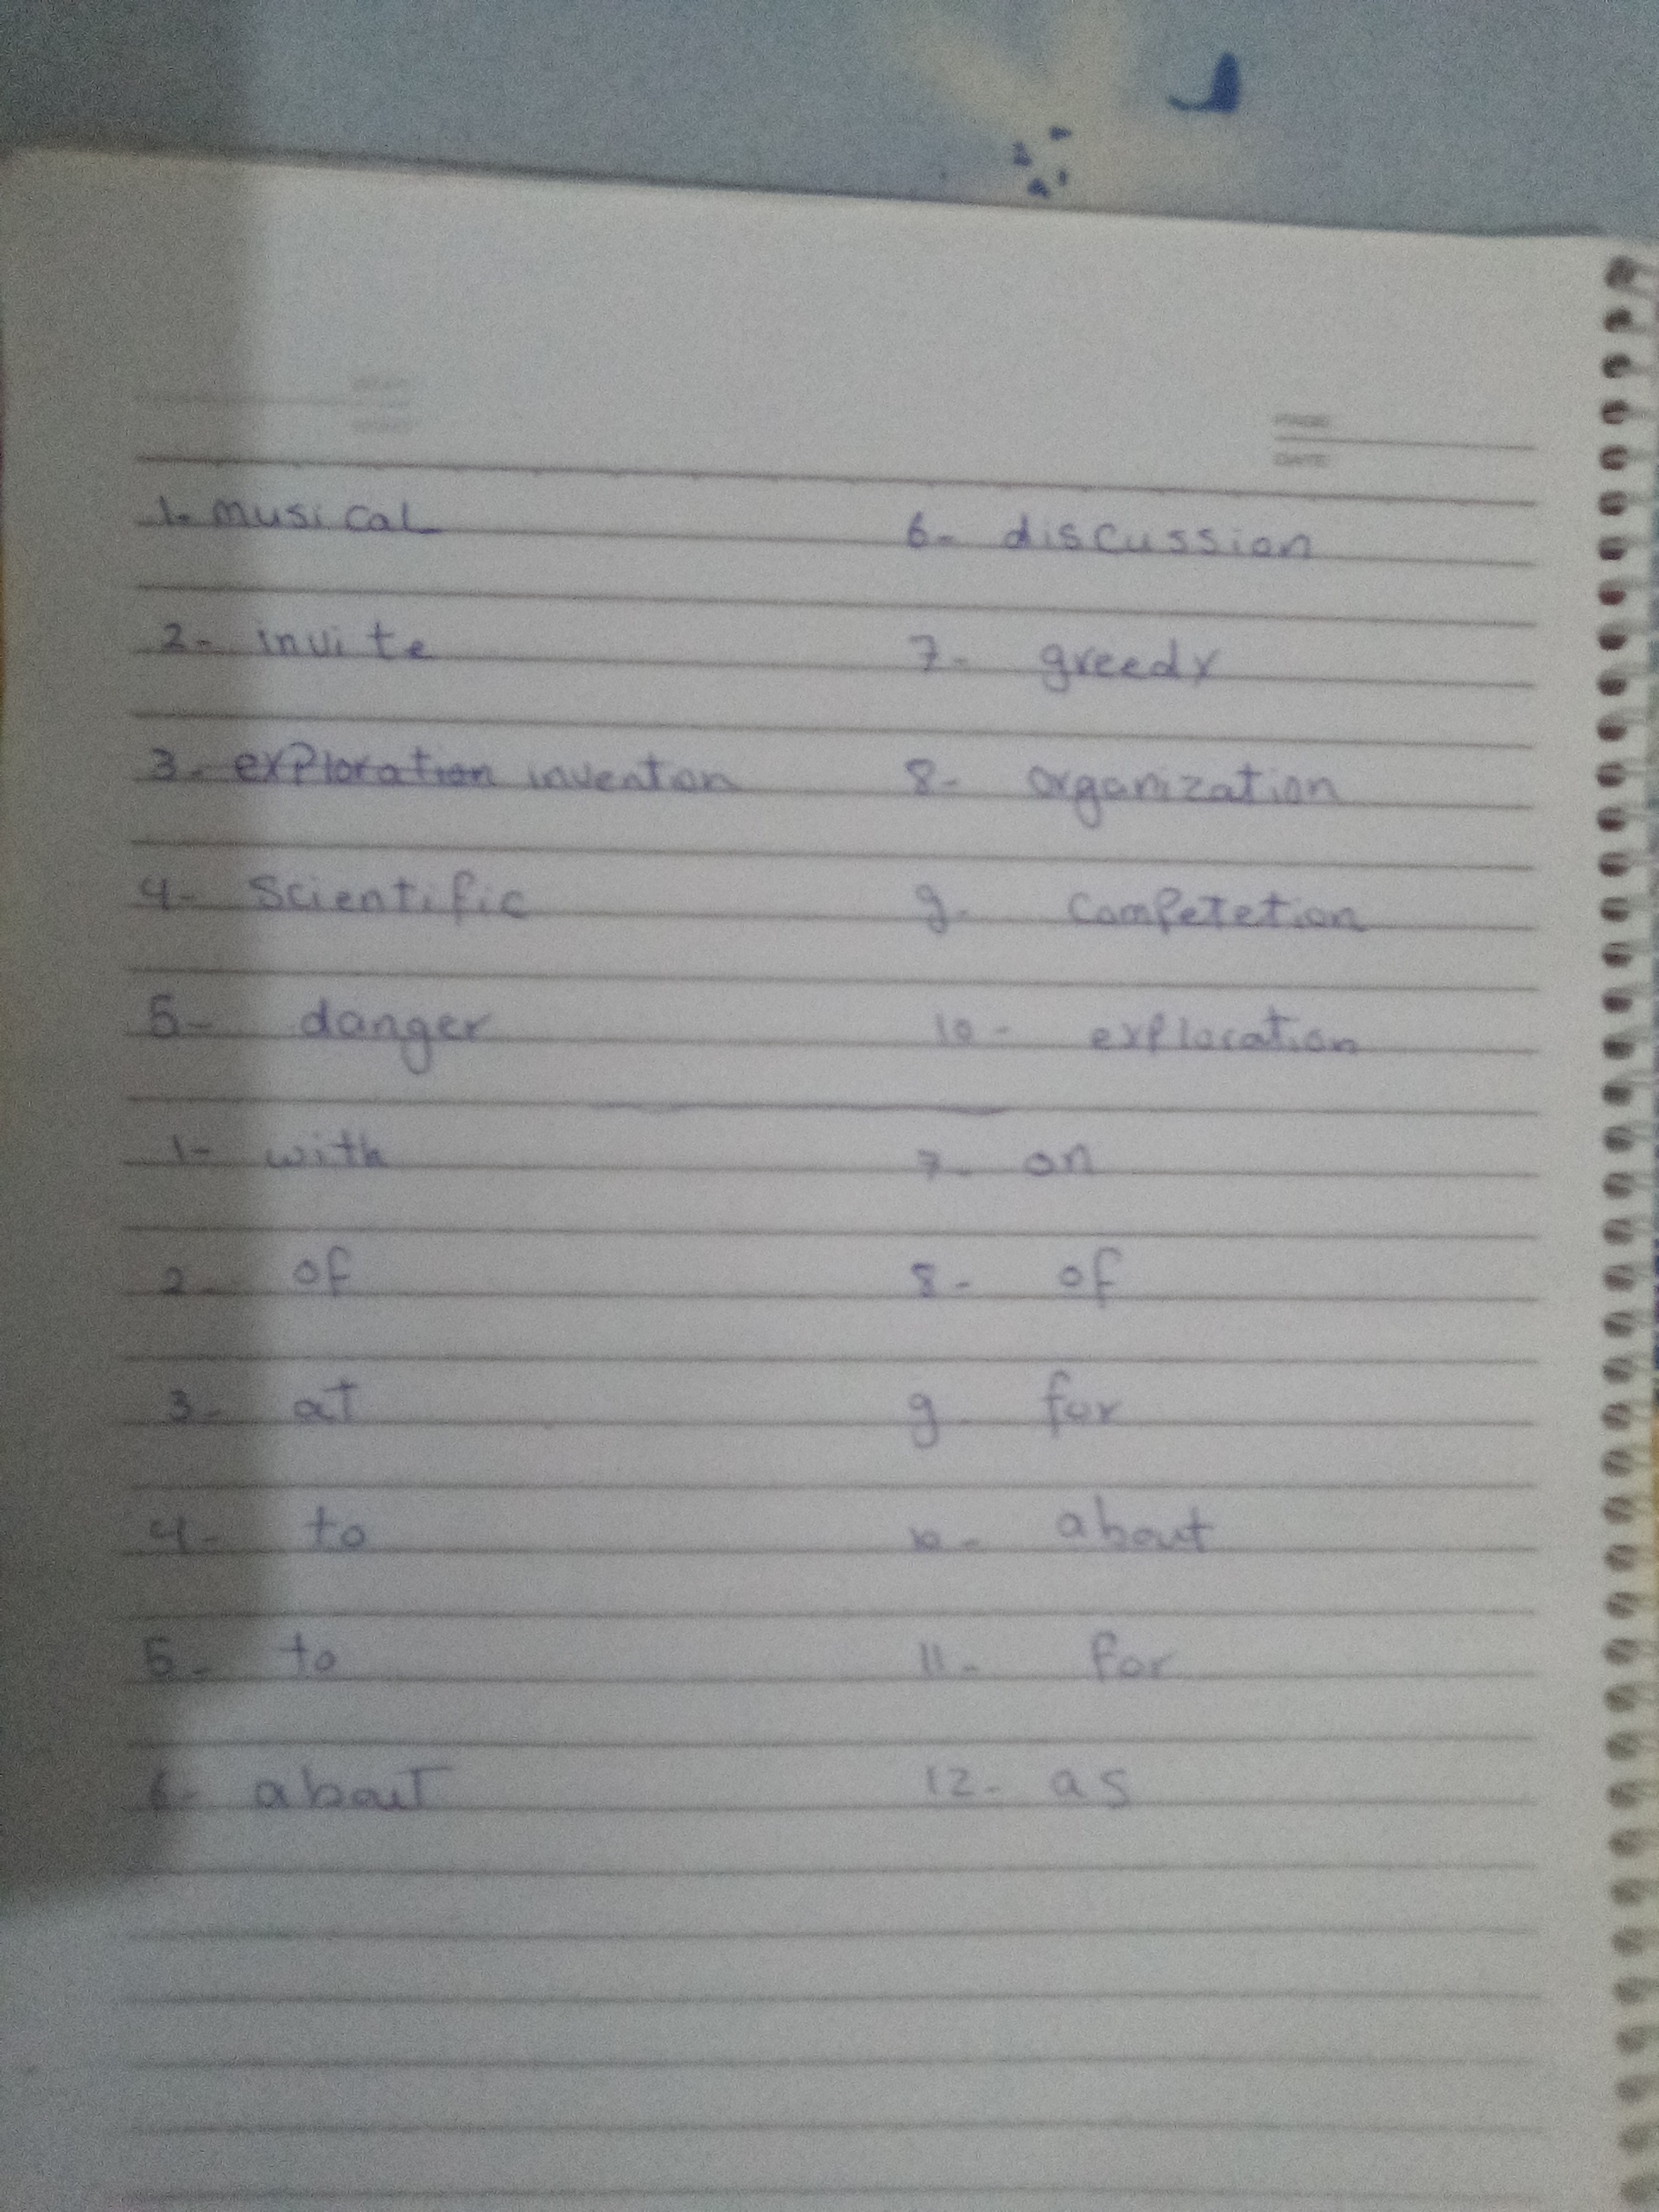 PAGE
DATE
1- musical
2- invite
3- ~~exploration~~ inventon
4- Scientific
5- danger
6- discussion
7- greedy
8- organization
9- Competetion
10- explocation
1- with
2- of
3- at
4- to
5- to
6- about
7- on
8- of
9- for
10- about
11- for
12- as